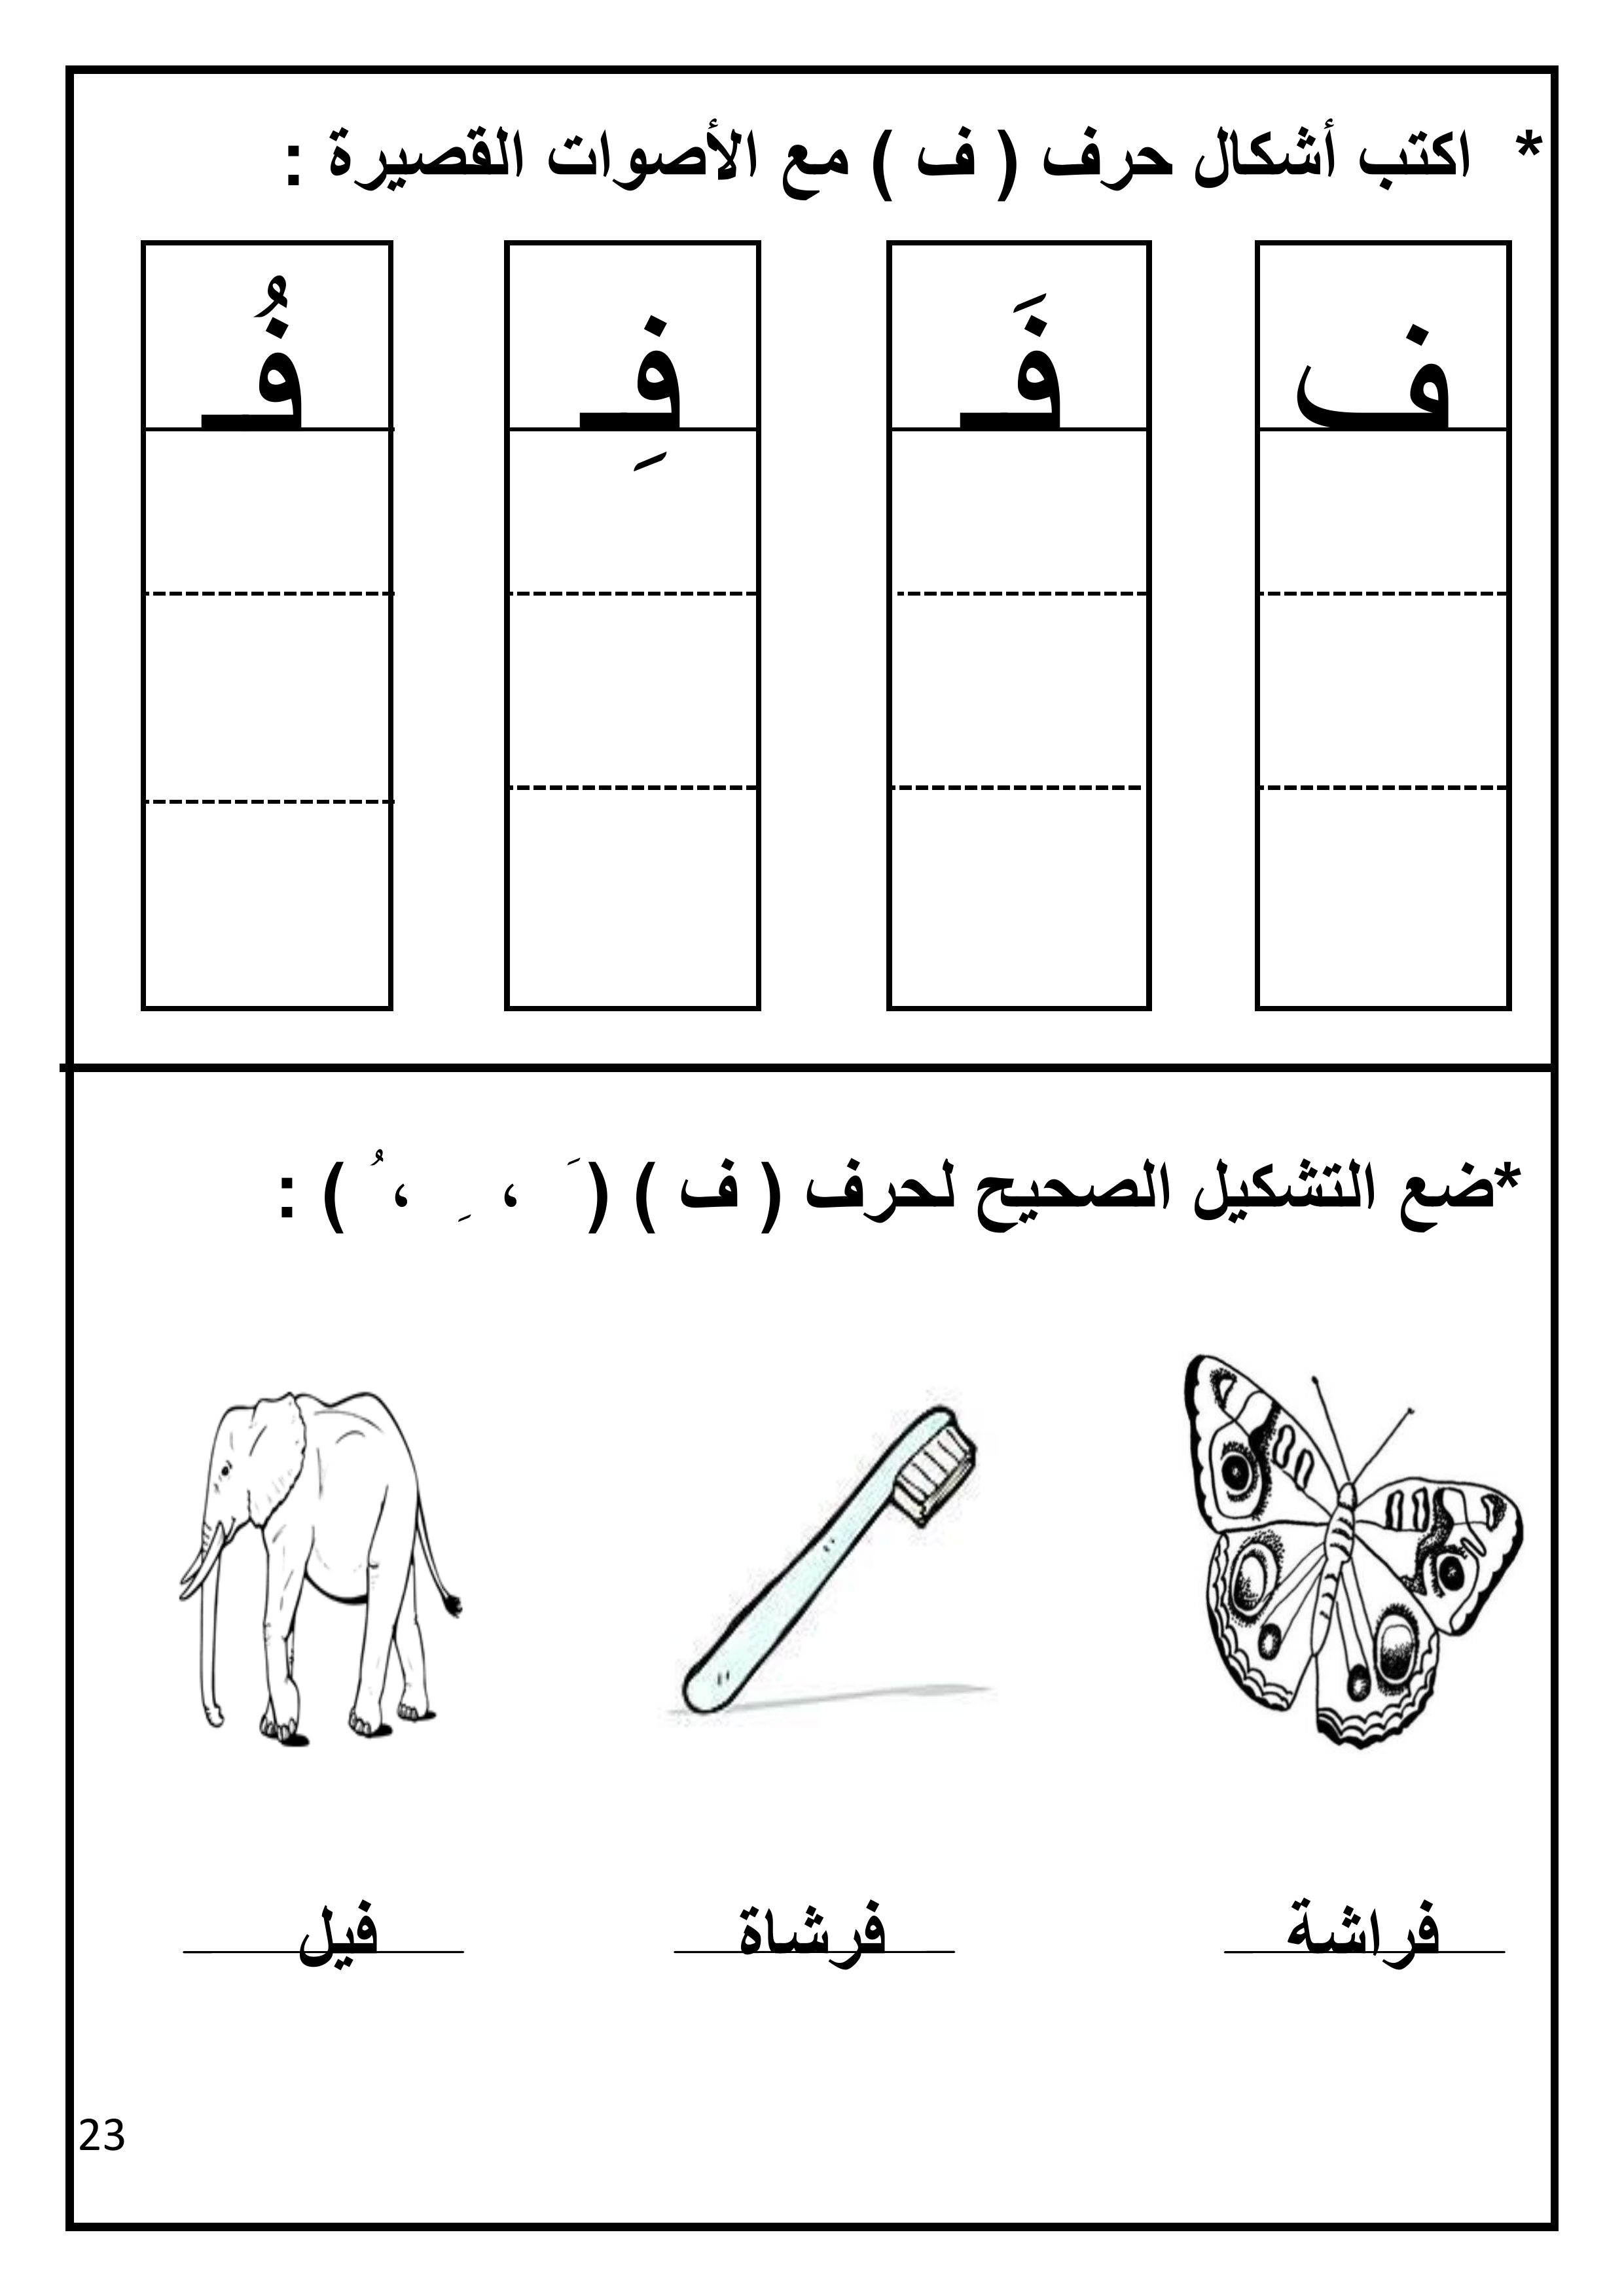 * اكتب أشكال حرف ( ف ) مع الأصوات القصيرة :
ف فَـ فِـ فُـ
*ضع التشكيل الصحيح لحرف ( ف ) ( َ ، ِ ، ُ ) :
فراشة فرشاة فيل
23